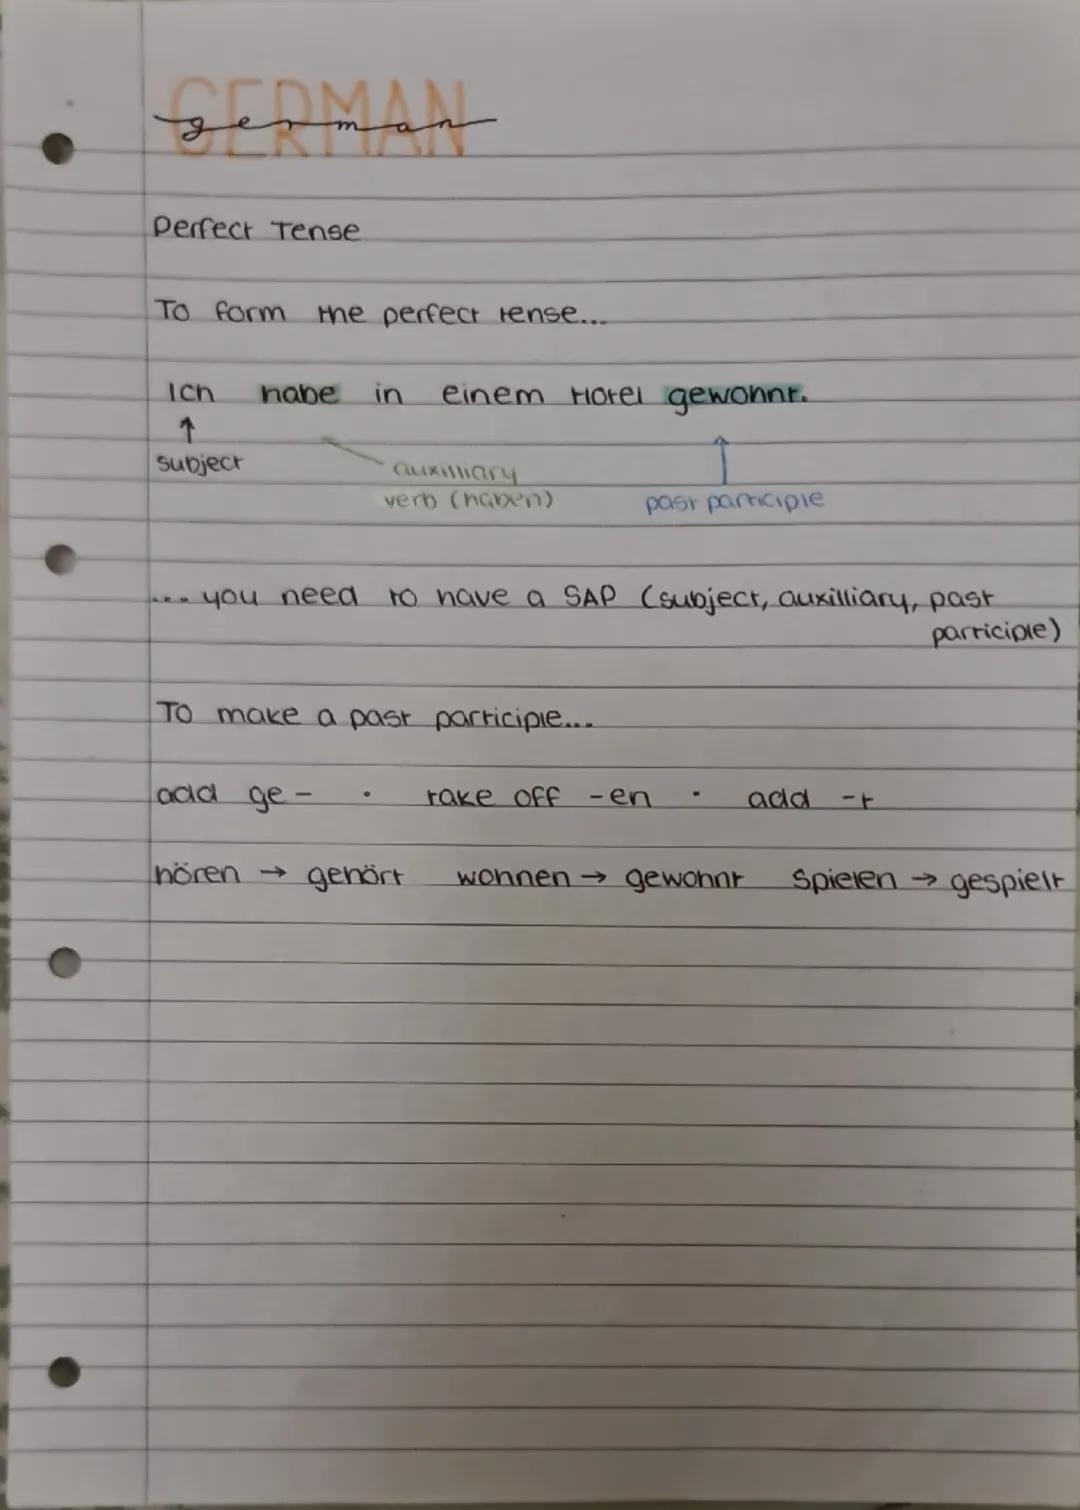 GERMAN
german
Perfect Tense
To form the perfect tense...
Ich habe in einem Hotel gewohnt.
↑
subject
auxilliary
verb (haben)
past participle
... you need to have a SAP (subject, auxilliary, past
participle)
To make a past participle...
add ge- • take off -en • add -t
hören → gehört wohnen → gewohnt spielen → gespielt